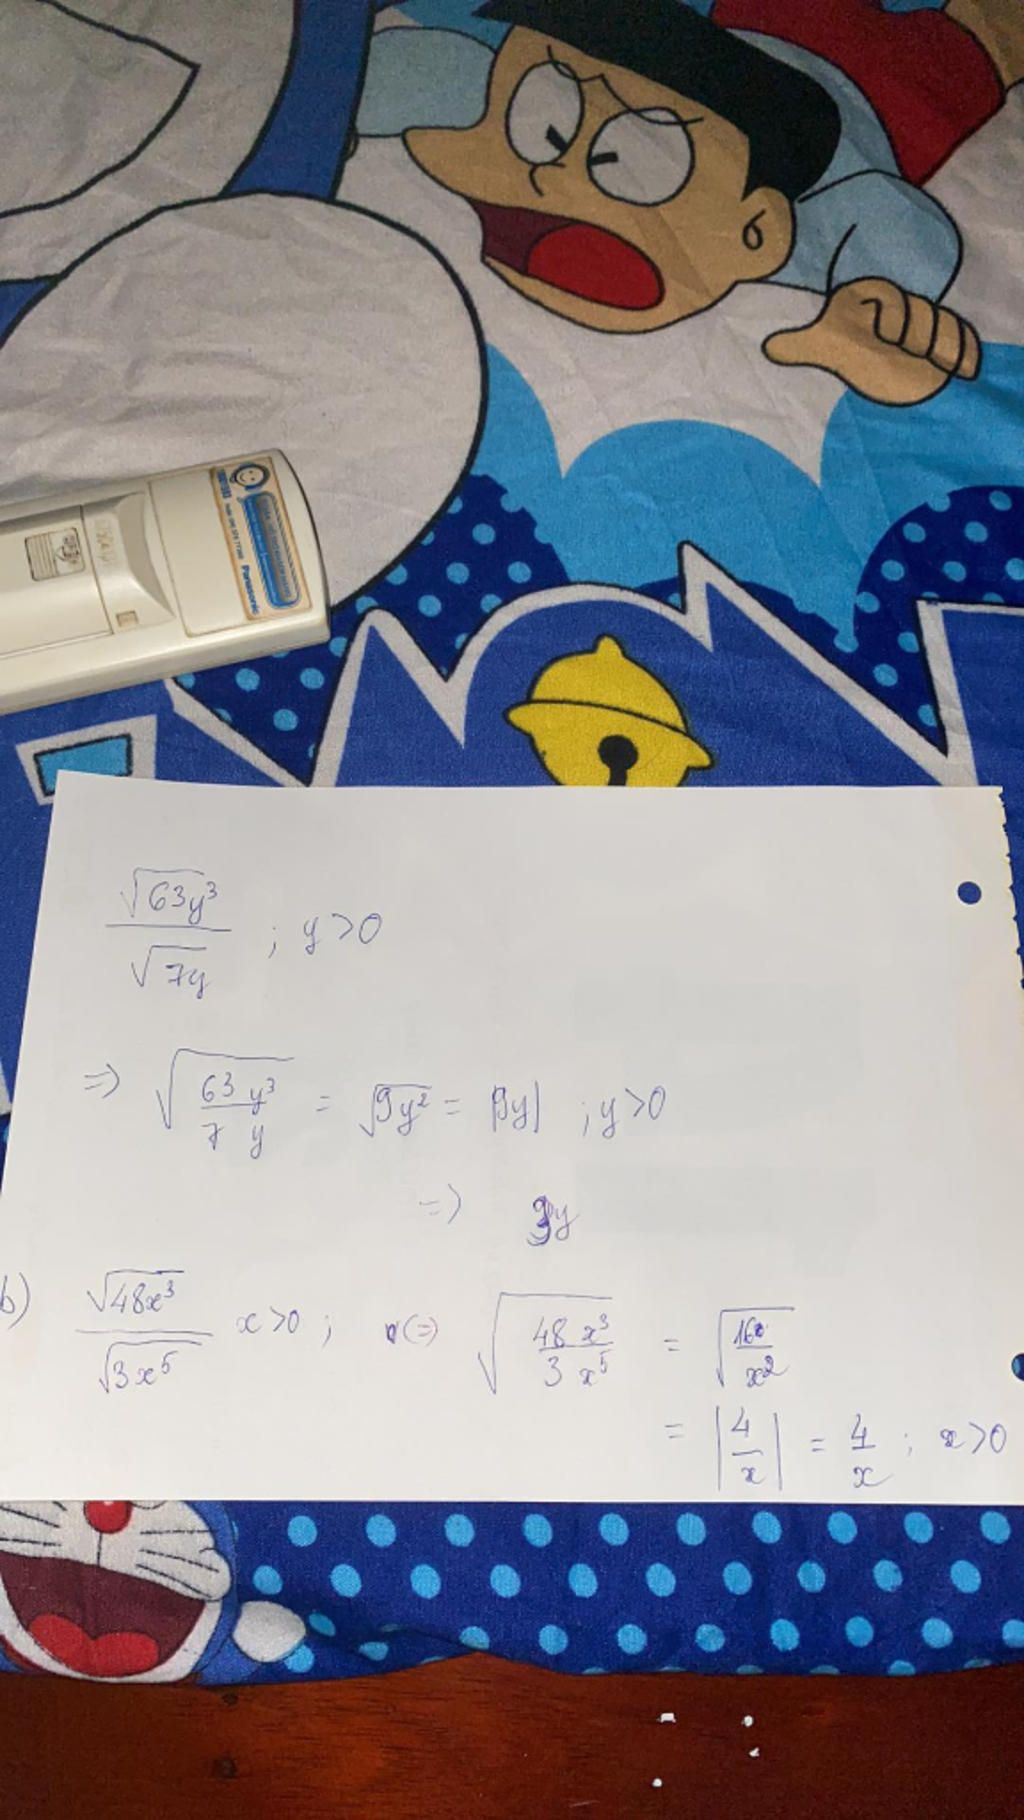 Panasonic
√63y³ / √7y ; y>0
=> √(63 y³ / 7 y) = √9y² = |9y| ; y>0
=> 3y
b) √48x³ / √3x⁵ x>0 ; (=) √(48 x³ / 3 x⁵) = √(16 / x²)
= |4/x| = 4/x ; x>0